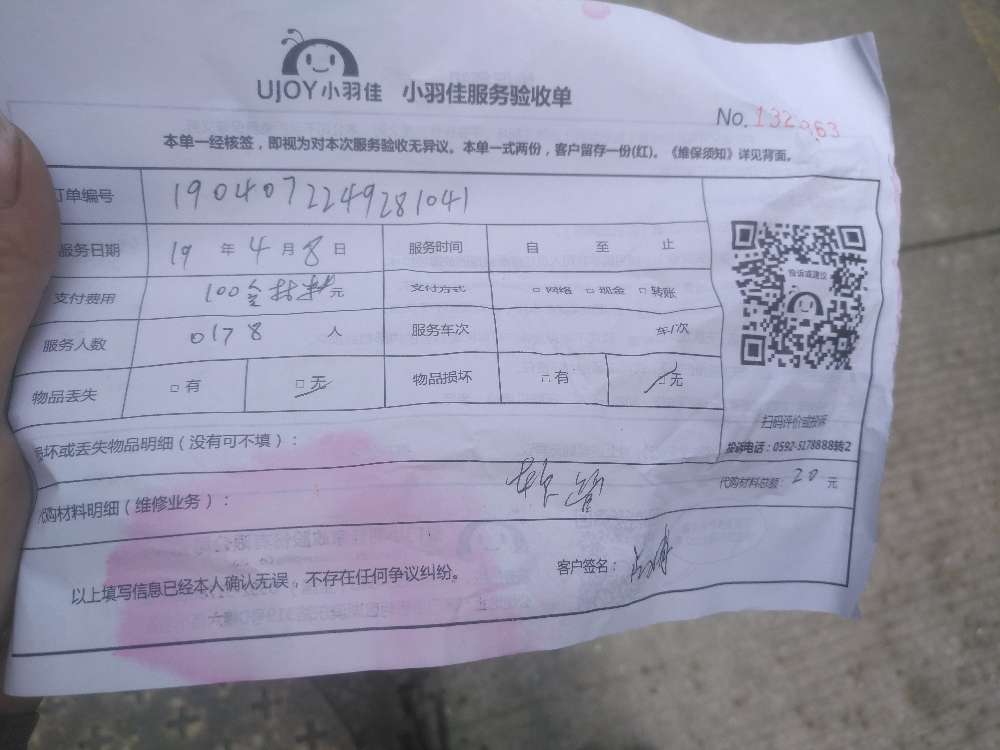 UJOY小羽佳 小羽佳服务验收单
No.
本单一经核签，即视为对本次服务验收无异议。本单一式两份，客户留存一份(红)。《维保须知》详见背面。
订单编号 1904072249281041
服务日期 19 年 4 月 8 日 服务时间 自 至 止
支付费用 100含材料元 支付方式 □网络 □现金 □转账
服务人数 0178 人 服务车次 车/次
物品丢失 □有 □无 物品损坏 □有 □无
投诉或建议
扫码评价或投诉
投诉电话：0592-5178888转2
损坏或丢失物品明细（没有可不填）：
代购材料明细（维修业务）： 软管 代购材料总额：20 元
以上填写信息已经本人确认无误，不存在任何争议纠纷。 客户签名：